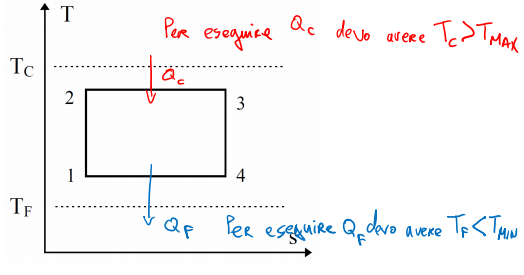 T
Per eseguire Qc devo avere Tc>TMAX
TC
Qc
2
3
1
4
TF
QF Per eseguire QF devo avere TF<TMIN
s